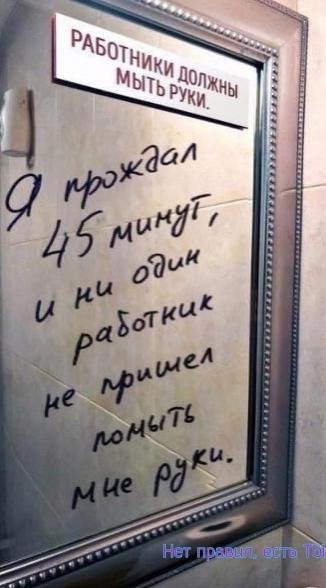 РАБОТНИКИ ДОЛЖНЫ
МЫТЬ РУКИ.
Я прождал
45 минут,
и ни один
работник
не пришел
помыть
мне руки.
Нет правил, есть